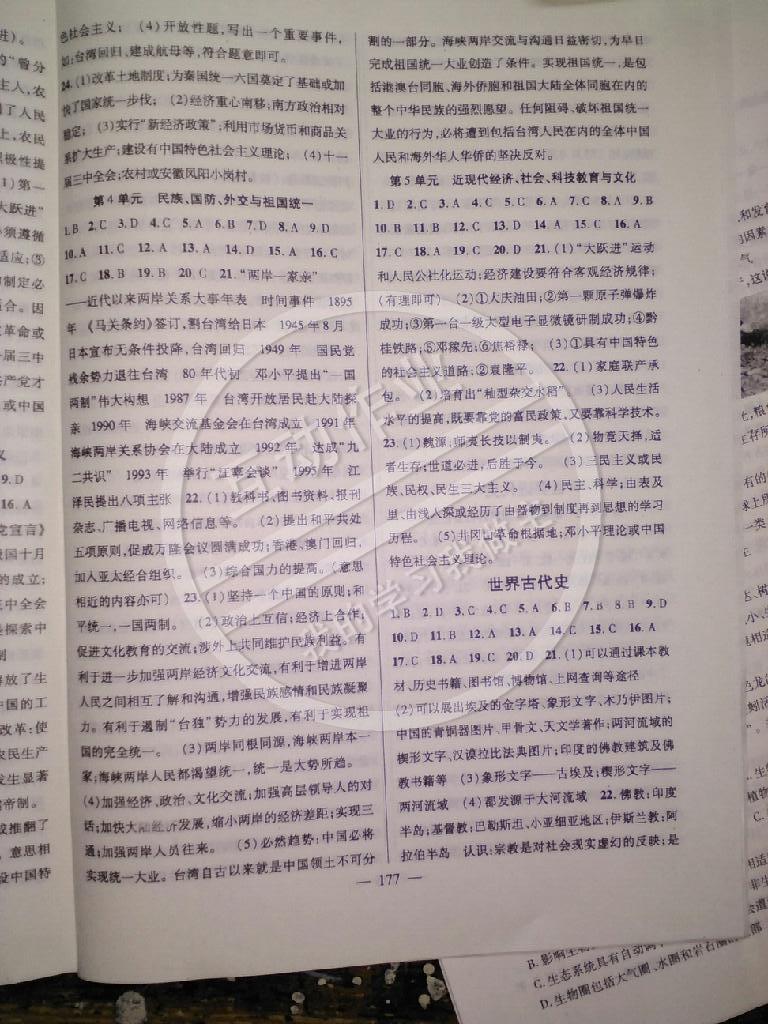 色社会主义；　(4)开放性题，写出一个重要事件，
如：台湾回归、建成航母等，符合题意即可。
24. (1)改革土地制度；为秦国统一六国奠定了基础或加
快了国家统一步伐；　(2)经济重心南移；南方政治相对
稳定；　(3)实行“新经济政策”；利用市场货币和商品关
系扩大生产；建设有中国特色社会主义理论；　(4)十一
届三中全会；农村或安徽凤阳小岗村。
第 4 单元　民族、国防、外交与祖国统一
1. B　2. C　3. D　4. C　5. A　6. B　7. D　8. A　9. D
10. A　11. C　12. A　13. A　14. D　15. A　16. C
17. C　18. B　19. B　20. C　21. “两岸一家亲”
——近代以来两岸关系大事年表　时间事件　1895
年　《马关条约》签订，割台湾给日本　1945 年 8 月
日本宣布无条件投降，台湾回归　1949 年　国民党
残余势力退往台湾　80 年代初　邓小平提出“一国
两制”伟大构想　1987 年　台湾开放居民赴大陆探
亲　1990 年　海峡交流基金会在台湾成立　1991 年
海峡两岸关系协会在大陆成立　1992 年　达成“九
二共识”　1993 年　举行“汪辜会谈”　1995 年　江
泽民提出八项主张　22. (1)教科书、图书资料、报刊
杂志、广播电视、网络信息等。　(2)提出和平共处
五项原则，促成万隆会议圆满成功；香港、澳门回归，
加入亚太经合组织。　(3)综合国力的提高。(意思
相近的内容亦可)　23. (1)坚持一个中国的原则；和
平统一，一国两制。　(2)政治上互信；经济上合作；
促进文化教育的交流；涉外上共同维护民族利益。有
利于进一步加强两岸经济文化交流，有利于增进两岸
人民之间相互了解和沟通，增强民族感情和民族凝聚
力。有利于遏制“台独”势力的发展，有利于实现祖
国的完全统一。　(3)两岸同根同源，海峡两岸本一
家；海峡两岸人民都渴望统一，统一是大势所趋。
(4)加强经济、政治、文化交流；加强高层领导人的对
话；加快大陆经济发展，缩小两岸的经济差距；实现三
通；加强两岸人员往来。　(5)必然趋势：中国必将
实现统一大业。台湾自古以来就是中国领土不可分
割的一部分。海峡两岸交流与沟通日益密切，为早日
完成祖国统一大业创造了条件。实现祖国统一，是包
括港澳台同胞、海外侨胞和祖国大陆全体同胞在内的
整个中华民族的强烈愿望。任何阻碍、破坏祖国统一
大业的行为，必将遭到包括台湾人民在内的全体中国
人民和海外华人华侨的坚决反对。
第 5 单元　近现代经济、社会、科技教育与文化
1. D　2. C　3. A　4. C　5. C　6. A　7. C　8. A　9. B
10. B　11. B　12. C　13. D　14. A　15. C　16. A
17. C　18. A　19. C　20. D　21. (1)“大跃进”运动
和人民公社化运动；经济建设要符合客观经济规律；
(有理即可)　(2)①大庆油田；②第一颗原子弹爆炸
成功；③第一台一级大型电子显微镜研制成功；④黔
桂铁路；⑤邓稼先；⑥焦裕禄；　(3)①具有中国特色
的社会主义道路；②袁隆平。　22. (1)家庭联产承
包。　(2)培育出“籼型杂交水稻”。　(3)人民生活
水平的提高，既要靠党的富民政策，又要靠科学技术。
23. (1)魏源；师夷长技以制夷。　(2)物竞天择，适
者生存；世道必进，后胜于今。　(3)三民主义或民
族、民权、民生三大主义。　(4)民主、科学；由表及
里、由浅入深或经历了由器物到制度再到思想的学习
历程。　(5)井冈山革命根据地；邓小平理论或中国
特色社会主义理论。
世界古代史
1. B　2. D　3. C　4. C　5. A　6. B　7. B　8. B　9. D
10. D　11. B　12. A　13. A　14. C　15. C　16. A
17. C　18. A　19. C　20. D　21. (1)可以通过课本教
材、历史书籍、图书馆、博物馆、上网查询等途径
(2)可以展出埃及的金字塔、象形文字、木乃伊图片；
中国的青铜器图片、甲骨文、天文学著作；两河流域的
楔形文字、汉谟拉比法典图片；印度的佛教建筑及佛
教书籍等　(3)象形文字——古埃及；楔形文字——
两河流域　(4)都发源于大河流域　22. 佛教：印度
半岛；基督教：巴勒斯坦、小亚细亚地区；伊斯兰教：阿
拉伯半岛　认识：宗教是对社会现实虚幻的反映；是
— 177 —
C. 生态系统具有自动调
D. 生物圈包括大气圈、水圈和岩石圈的